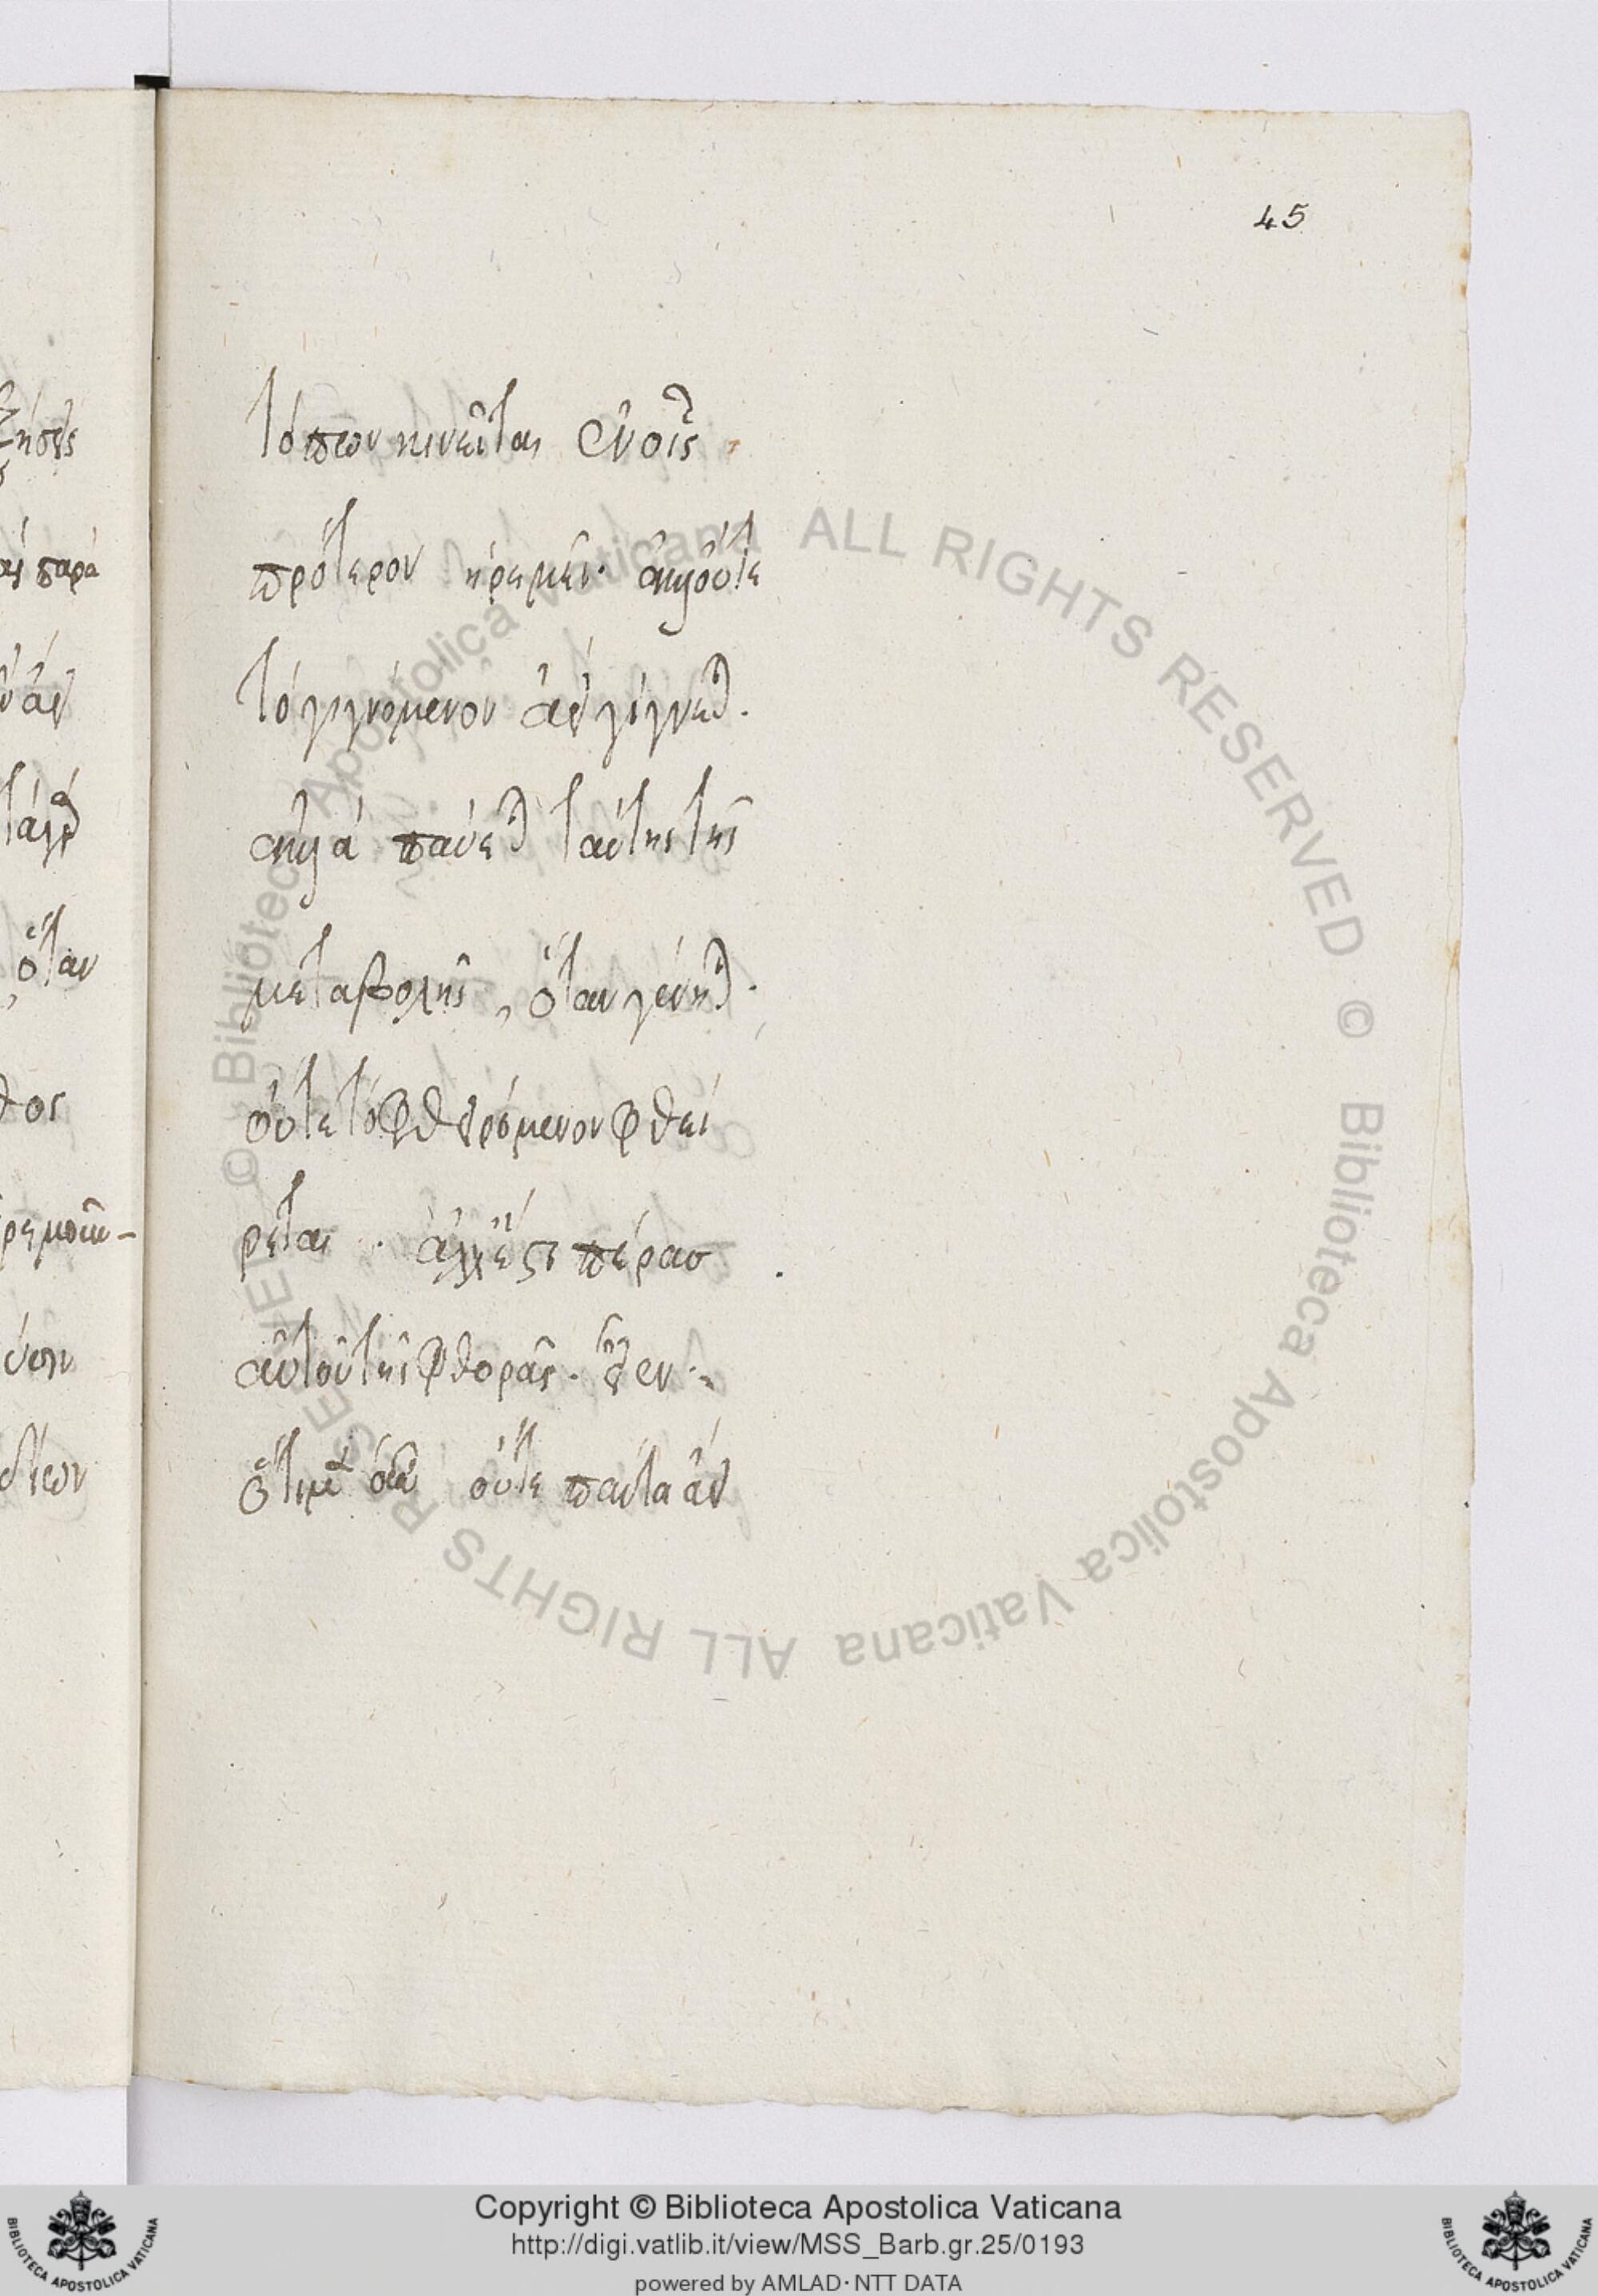 45
τόπων κινεῖται ἐν οἷς
πρότερον ἠρέμει. ἀλλ' οὔτε
τὸ γιγνόμενον ἀεὶ γίγνεται.
ἀλλὰ παύεται ταύτης τῆς
μεταβολῆς, ὅταν γένηται.
οὔτε τὸ φθειρόμενον φθεί
ρεται. ἀλλ' ἔστι πέρας
αὐτοῦ τῆς φθορᾶς.
ὅτι μὲν οὖν οὔτε πάντα ἀεὶ
ξήσεις
παρά
ἀεὶ
ὅταν
© Biblioteca Apostolica Vaticana ALL RIGHTS RESERVED © Biblioteca Apostolica Vaticana ALL RIGHTS RESERVED
Copyright © Biblioteca Apostolica Vaticana
http://digi.vatlib.it/view/MSS_Barb.gr.25/0193
powered by AMLAD·NTT DATA
BIBLIOTECA APOSTOLICA VATICANA
BIBLIOTECA APOSTOLICA VATICANA